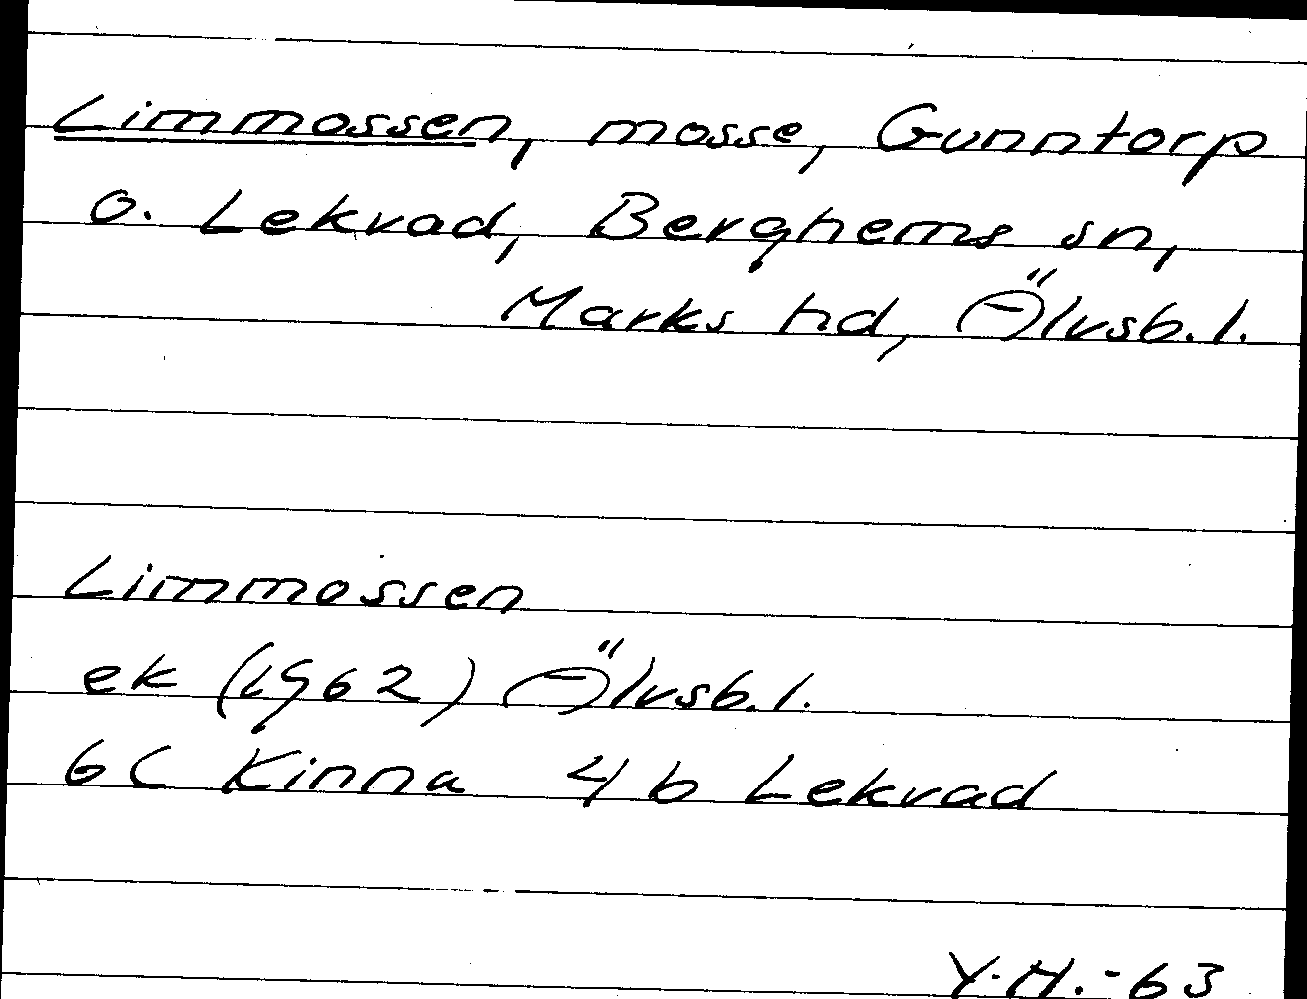 Limmossen, mosse, Gunntorp
o. Lekvad, Berghems sn,
Marks hd, Älvsb. l.
Limmossen
ek (1962) Älvsb. l.
6C Kinna 4b Lekvad
Y.H.-63